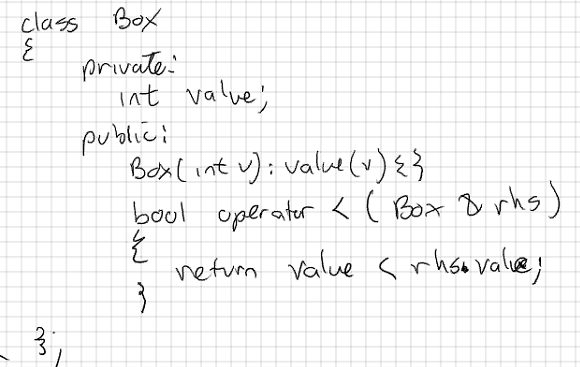 class Box
{
private:
int value;
public:
Box(int v): value(v) {}
bool operator < ( Box & rhs)
{
return value < rhs.value;
}
};